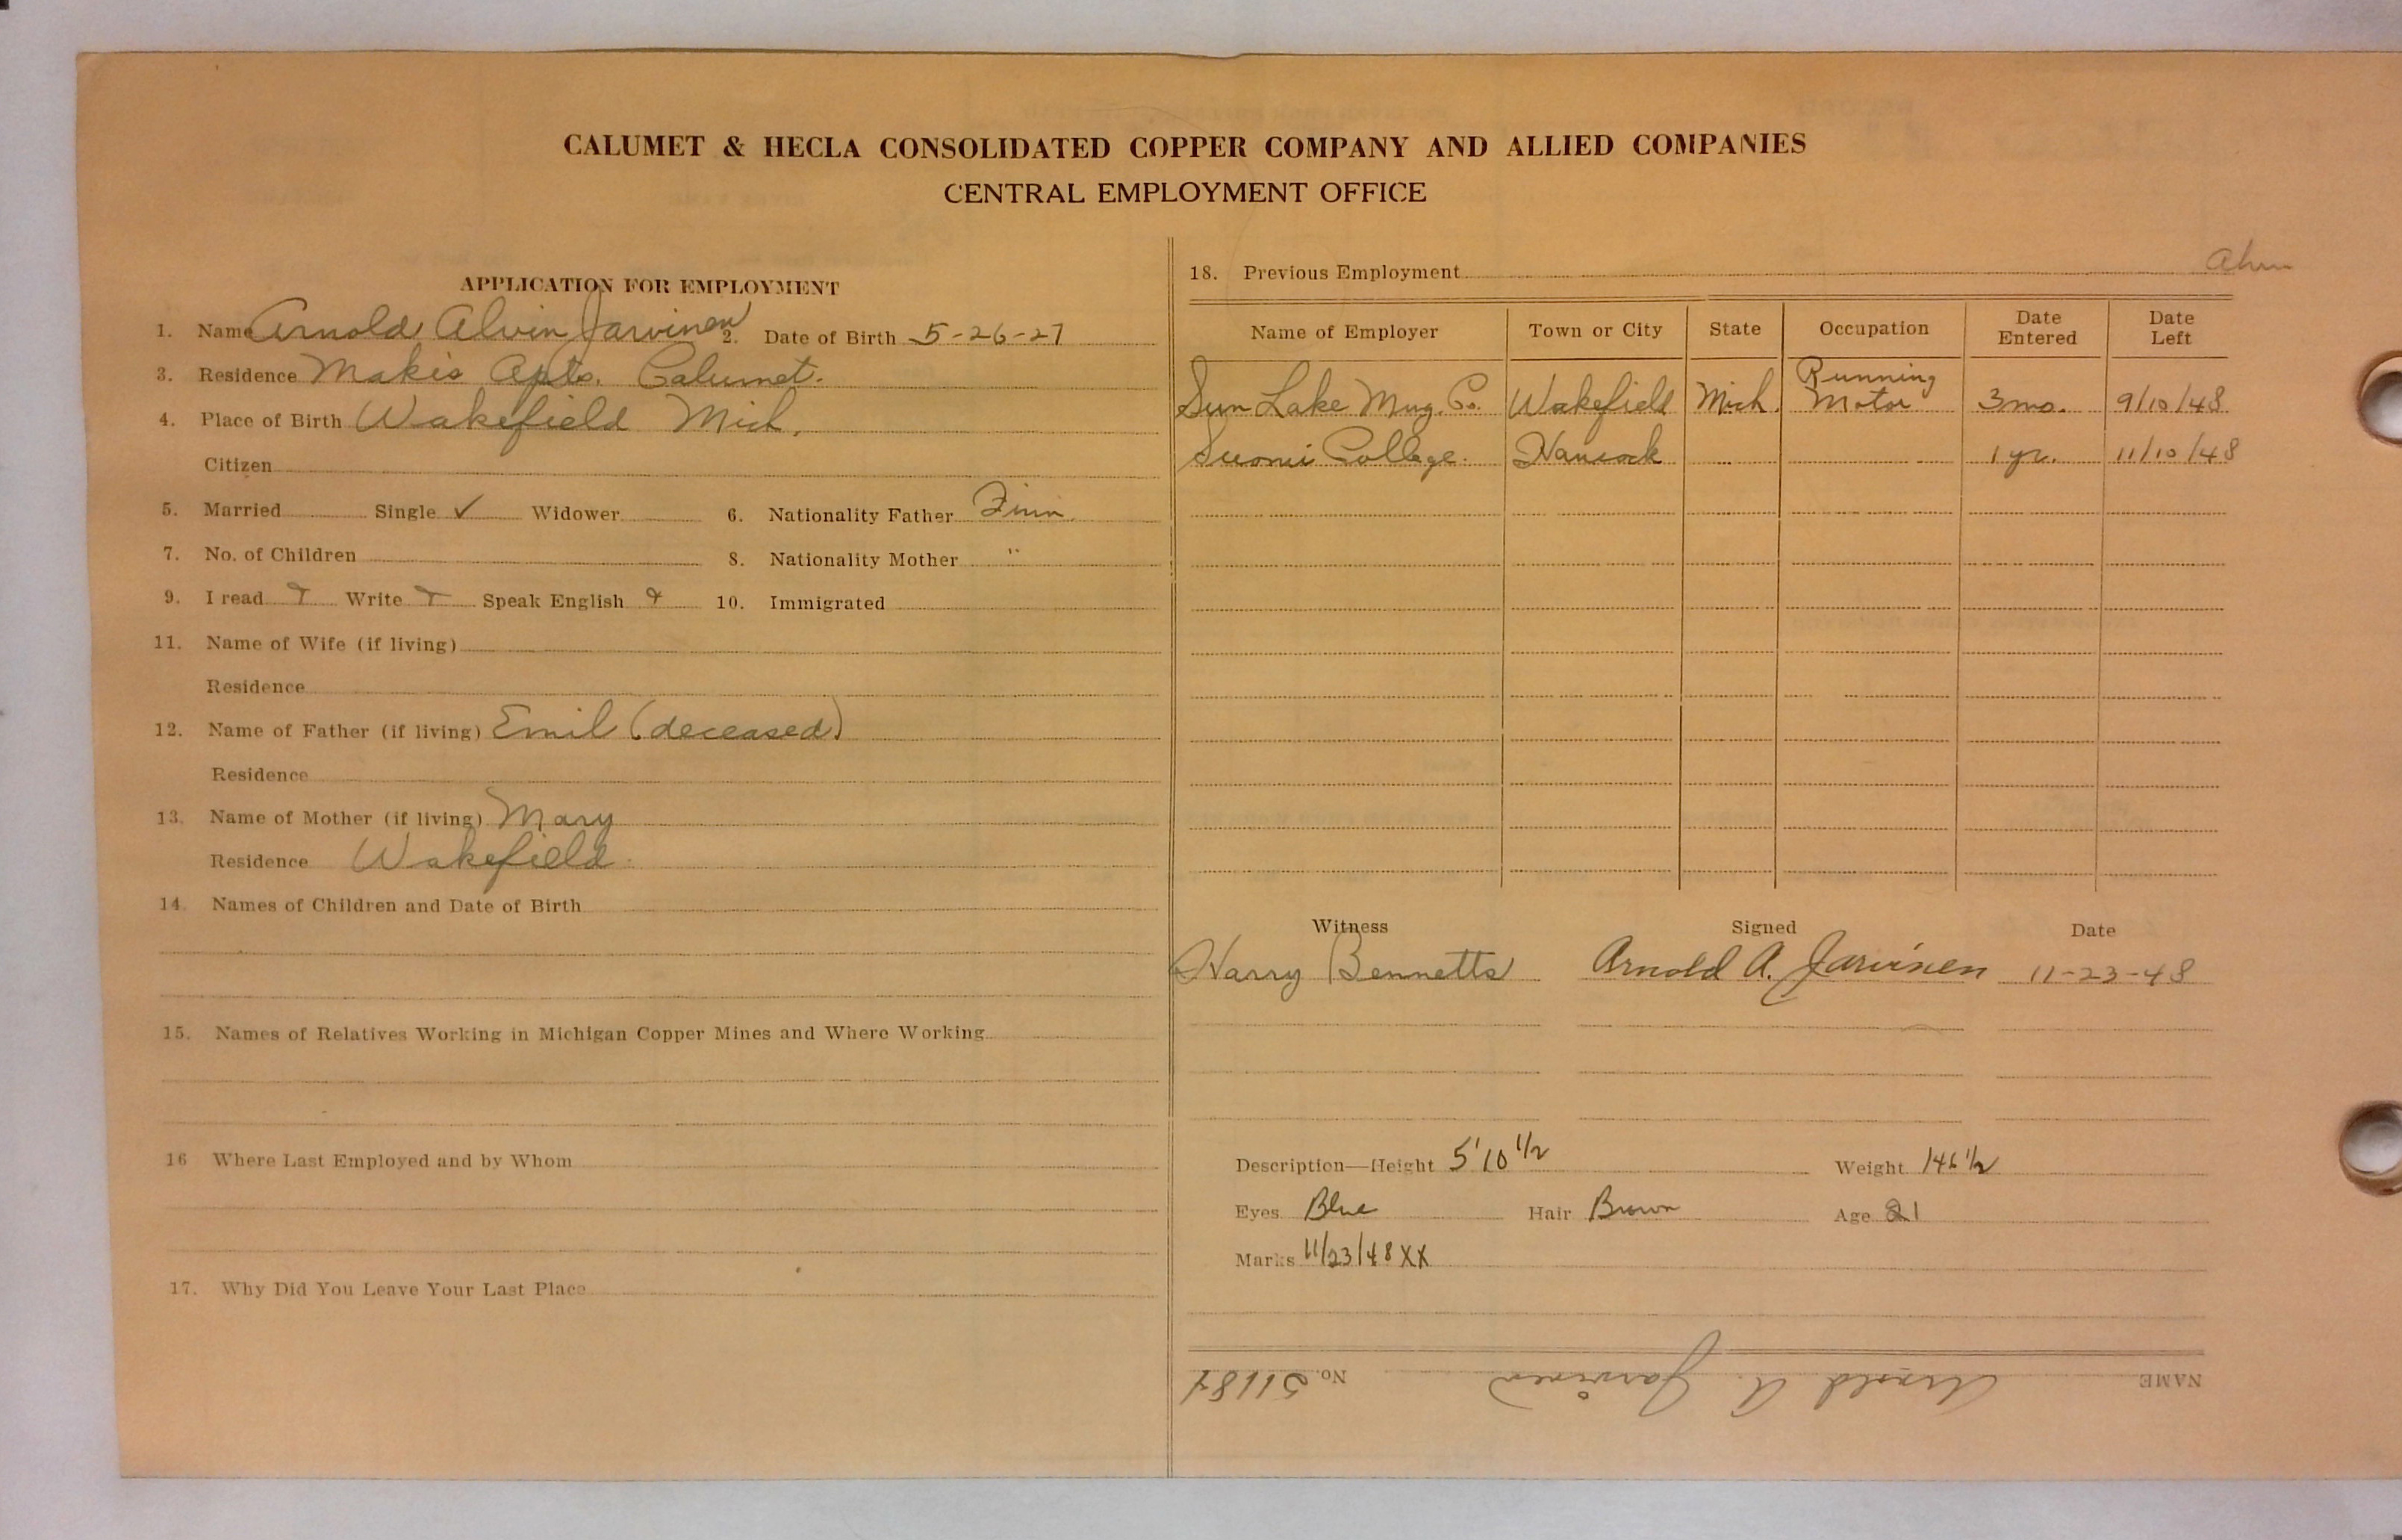 CALUMET & HECLA CONSOLIDATED COPPER COMPANY AND ALLIED COMPANIES
CENTRAL EMPLOYMENT OFFICE
APPLICATION FOR EMPLOYMENT
1. Name Arnold Alvin Jarvinen 2. Date of Birth 5-26-27
3. Residence Makis Apts. Calumet.
4. Place of Birth Wakefield Mich.
Citizen
5. Married Single ✓ Widower 6. Nationality Father Finn
7. No. of Children 8. Nationality Mother "
9. I read Write Speak English 10. Immigrated
11. Name of Wife (if living)
Residence
12. Name of Father (if living) Emil (deceased)
Residence
13. Name of Mother (if living) Mary
Residence Wakefield
14. Names of Children and Date of Birth
15. Names of Relatives Working in Michigan Copper Mines and Where Working
16 Where Last Employed and by Whom
17. Why Did You Leave Your Last Place
18. Previous Employment
Name of Employer Town or City State Occupation Date Entered Date Left
Sun Lake Mng. Co. Wakefield Mich. Running Motor 3 mo. 9/10/48
Suomi College. Hancock 1 yr. 11/10/48
Witness Signed Date
Harry Bennetts Arnold A. Jarvinen 11-23-48
Description—Height 5'10 1/2 Weight 146 1/2
Eyes Blue Hair Brown Age 21
Marks 11/23/48 XX
NAME Arnold A. Jarvinen No. 51187